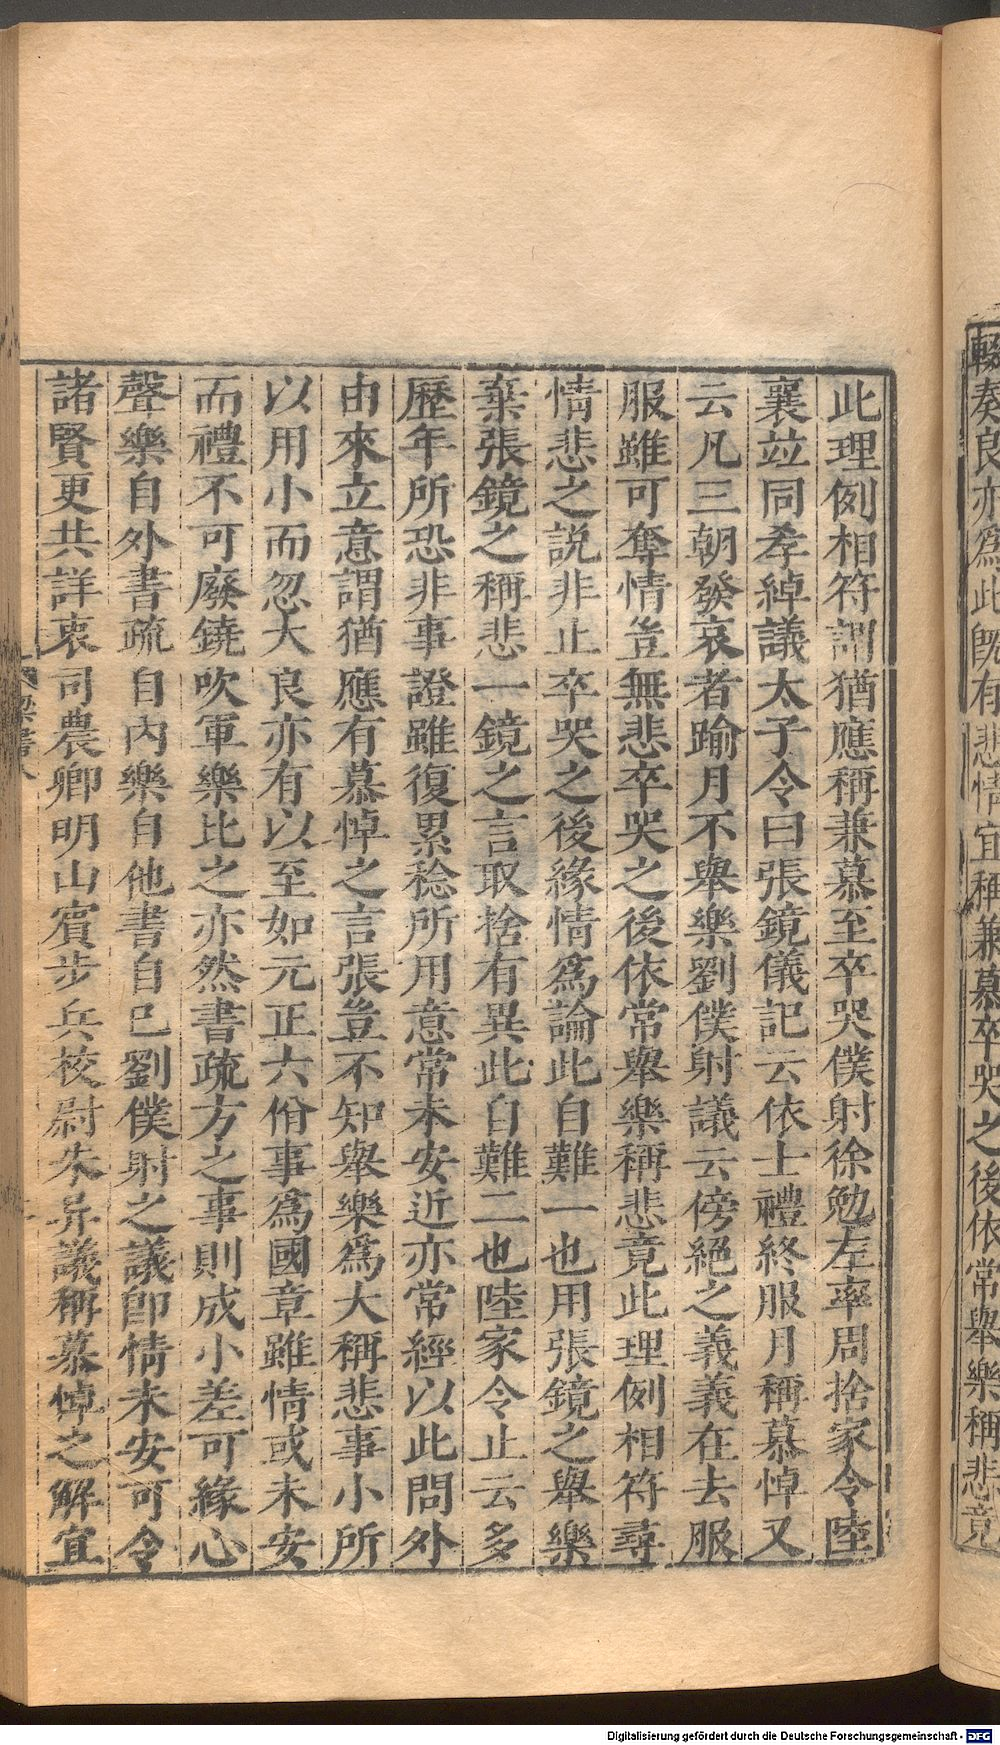 輟奏良亦爲此旣有悲情宜稱兼慕卒哭之後依常舉樂稱悲竟
此理例相符謂猶應稱兼慕至卒哭僕射徐勉左率周捨家令陸
襄竝同孝綽議太子令曰張鏡儀記云依士禮終服月稱慕悼又
云凡三朝發哀者踰月不舉樂劉僕射議云傍絕之義義在去服
服雖可奪情豈無悲卒哭之後依常舉樂稱悲竟此理例相符尋
情悲之説非止卒哭之後緣情爲論此自難一也用張鏡之舉樂
棄張鏡之稱悲一鏡之言取捨有異此自難二也陸家令止云多
歷年所恐非事證雖復累稔所用意常未安近亦常經以此問外
由來立意謂猶應有慕悼之言張豈不知舉樂爲大稱悲事小所
以用小而忽大良亦有以至如元正六佾事爲國章雖情或未安
而禮不可廢鐃吹軍樂比之亦然書疏方之事則成小差可緣心
聲樂自外書疏自內樂自他書自已劉僕射之議卽情未安可令
諸賢更共詳衷司農卿明山賓步兵校尉朱异議稱慕悼之解宜
Digitalisierung gefördert durch die Deutsche Forschungsgemeinschaft - DFG